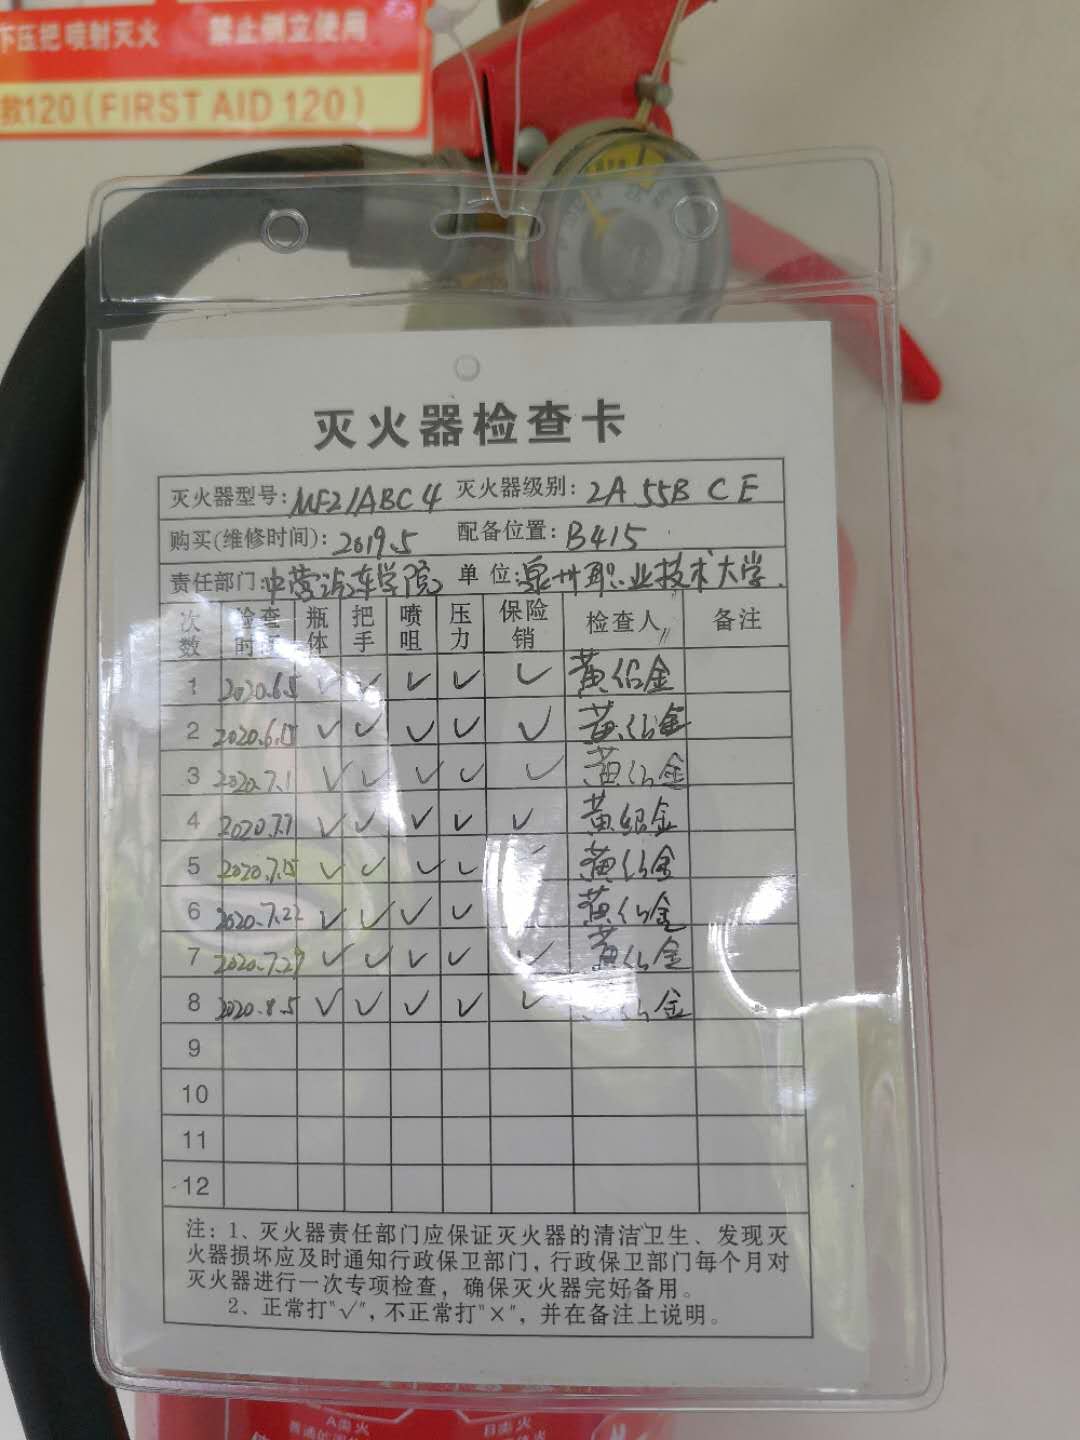 下压把 喷射灭火 禁止倒立使用
救120(FIRST AID 120)
灭火器检查卡
灭火器型号: MFZ/ABC4 灭火器级别: 2A 55B C E
购买(维修时间): 2019.5 配备位置: B415
责任部门: 中营汽车学院 单 位: 泉州职业技术大学.
次数 检查时间 瓶体 把手 喷咀 压力 保险销 检查人 备注
1 2020.6.5 ✓ ✓ ✓ ✓ ✓ 黄绍金
2 2020.6.15 ✓ ✓ ✓ ✓ ✓ 黄绍金
3 2020.7.1 ✓ ✓ ✓ ✓ ✓ 黄绍金
4 2020.7.7 ✓ ✓ ✓ ✓ ✓ 黄绍金
5 2020.7.15 ✓ ✓ ✓ ✓ ✓ 黄绍金
6 2020.7.22 ✓ ✓ ✓ ✓ 黄绍金
7 2020.7.29 ✓ ✓ ✓ ✓ ✓ 黄绍金
8 2020.8.5 ✓ ✓ ✓ ✓ ✓ 金
9
10
11
12
注: 1、灭火器责任部门应保证灭火器的清洁卫生、发现灭
火器损坏应及时通知行政保卫部门，行政保卫部门每个月对
灭火器进行一次专项检查，确保灭火器完好备用。
2、正常打"√"，不正常打"×"，并在备注上说明。
A类火 B类火